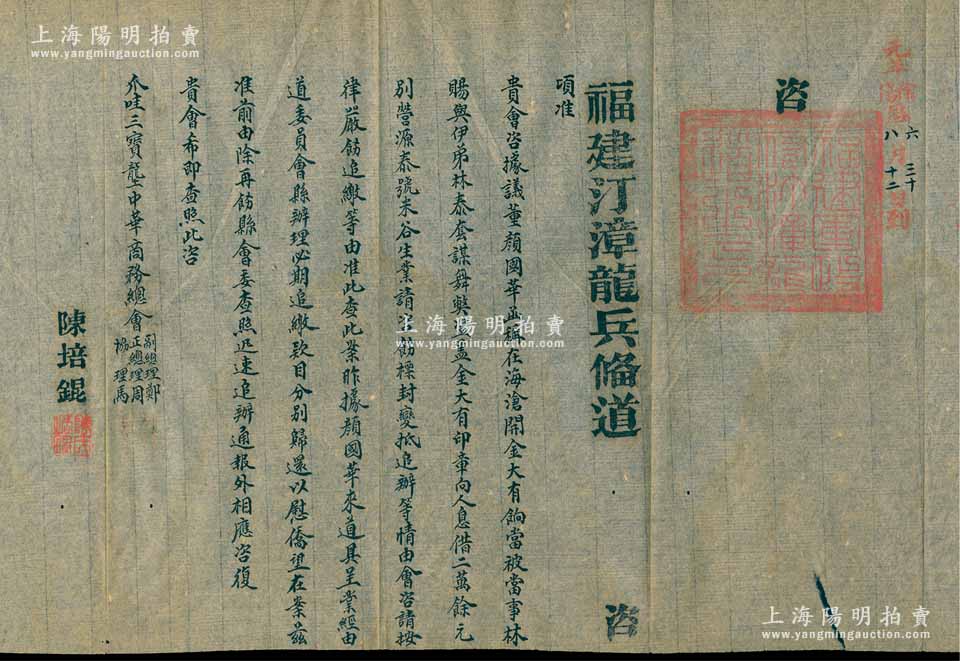 咨
福建汀漳龍兵備道 咨
項准
貴會咨據議董顏國華函稱在海滄開金大有餉當被當事林
賜與伊弟林泰套謀舞弊盜蓋金大有印章向人息借二萬餘元
別營源泰號米谷生業請咨飭標封變抵追辦等情由會咨請按
律嚴飭追繳等由准此查此案昨據顏國華來道具呈業經由
道委員會縣辦理必期追繳款目分別歸還以慰僑望在案茲
准前由除再飭縣會委查照迅速追辦通報外相應咨復
貴會希即查照此咨
爪哇三寶壟中華商務總會
副總理鄭
正總理周
協理馬
陳培錕
元年
六月三十
八月十二日到
上海陽明拍賣
www.yangmingauction.com
上海陽明拍賣
www.yangmingauction.com
上海陽明拍賣
www.yangmingauction.com
上海陽明拍賣
www.yangmingauction.com